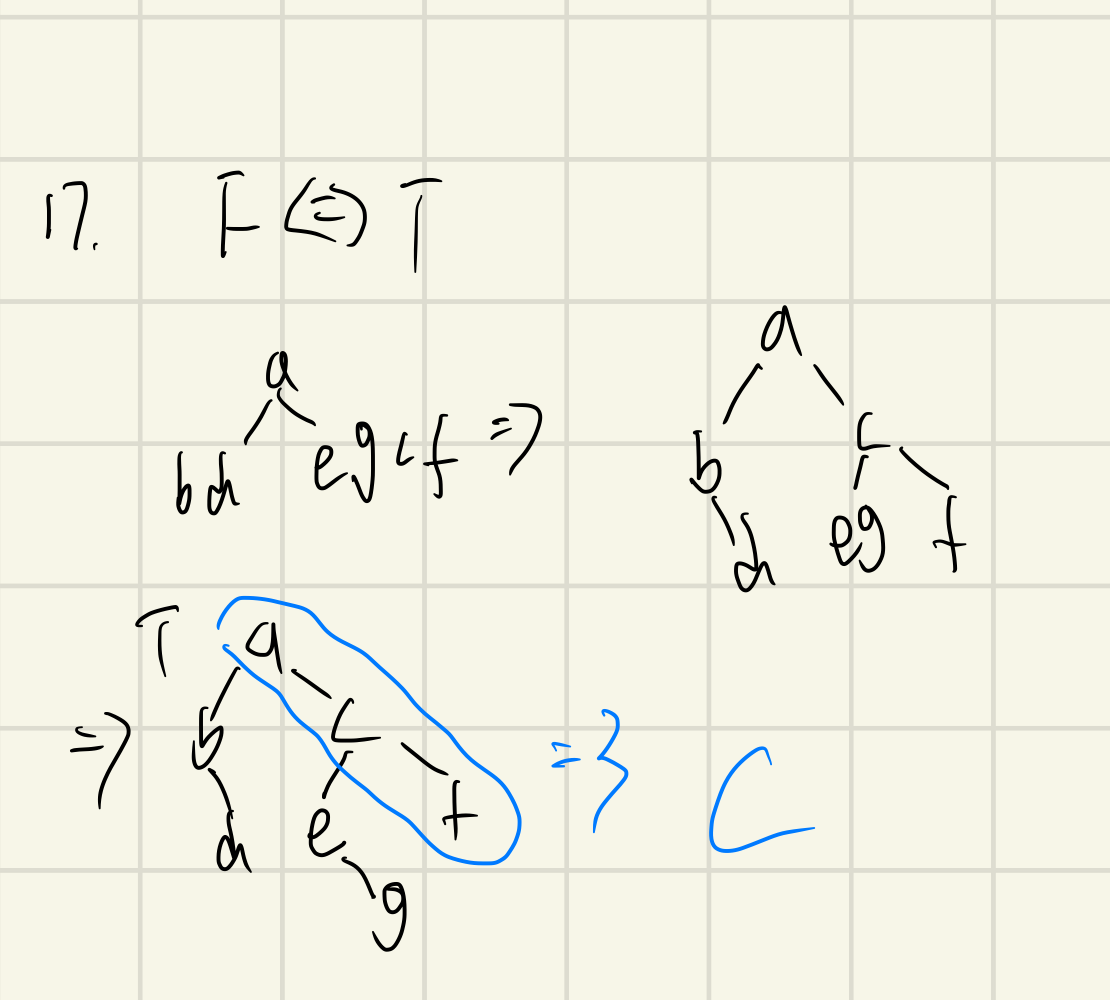 17. F <=> T
a
bd egcf =>
a
b c
d eg f
T a
=> b c => C
d e f
g